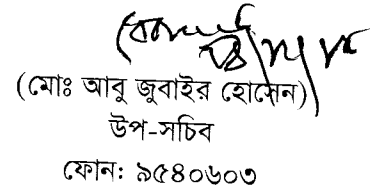 (মোঃ আবু জুবাইর হোসেন)
উপ-সচিব
ফোন: ৯৫৪০৬০৩